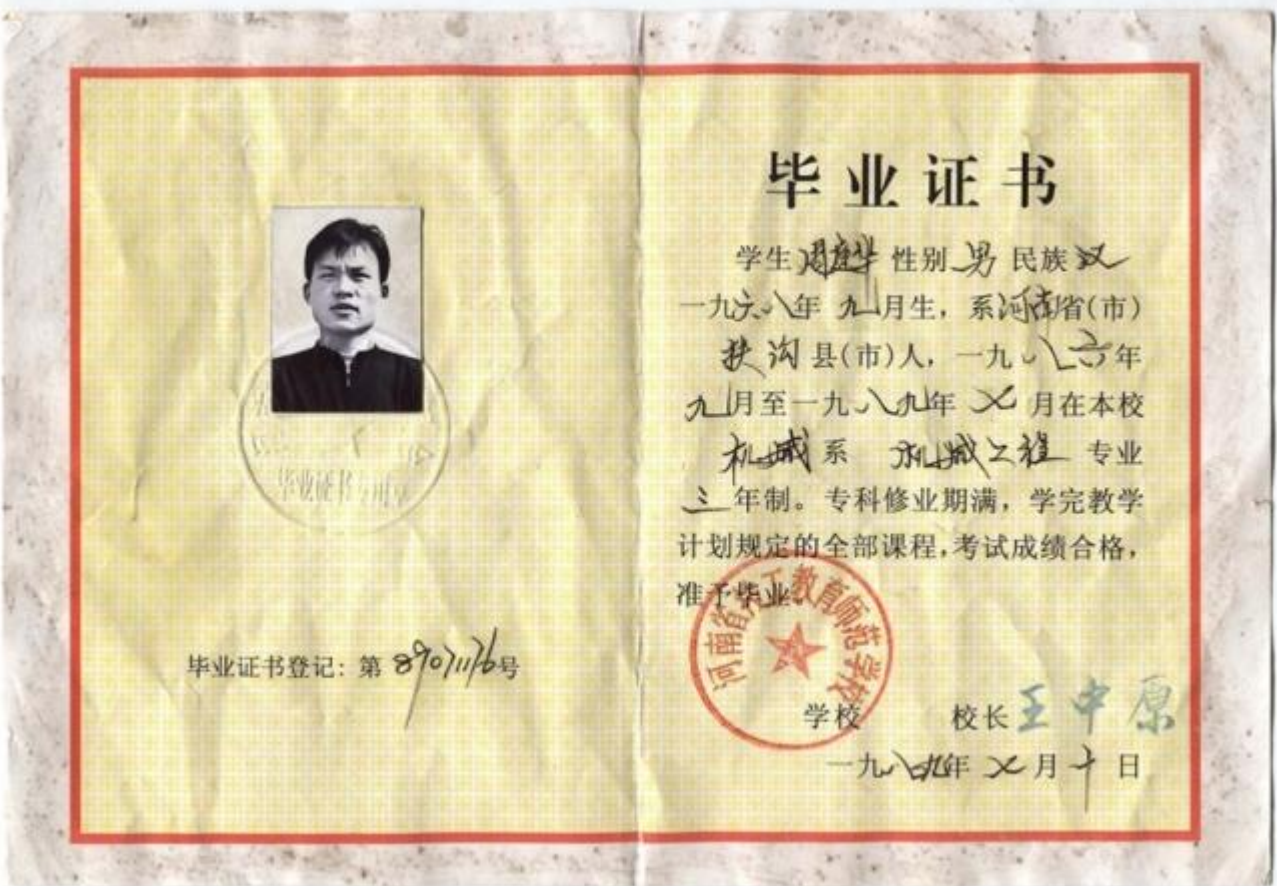 毕业证书登记: 第89071176号
毕业证书专用章
毕业证书
学生 周建华 性别 男 民族 汉
一九六八年 九月生, 系河南省(市)
扶沟县(市)人, 一九八六年
九月至一九八九年 七月在本校
机械系 机械工程 专业
三年制。专科修业期满, 学完教学
计划规定的全部课程,考试成绩合格,
准予毕业。
河南省 工教育师范学校
学校 校长 王中原
一九八九年 七月十日